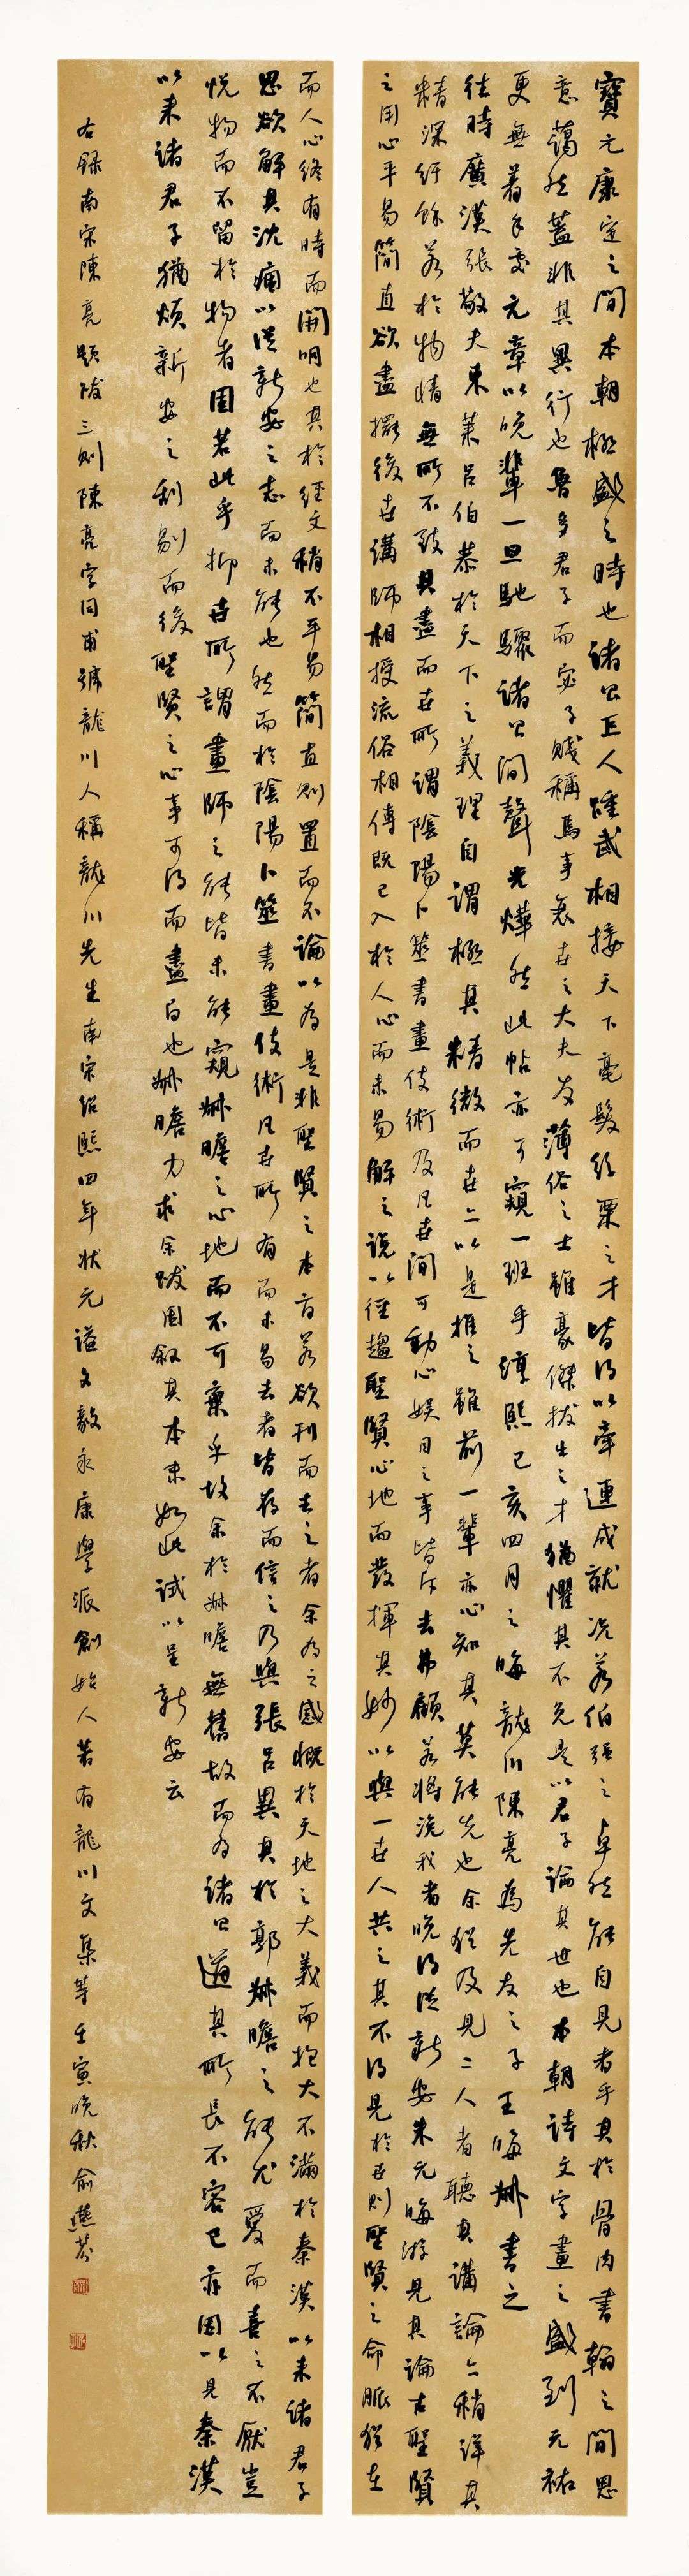 寶元康定之間本朝極盛之時也諸公正人踵武相接天下毫髮絲粟之才皆得以牽連成就況若伯強之卓然能自見者乎其於骨肉書翰之間思
意藹然蓋非其異行也魯多君子而宓子賤稱焉事衰世之大夫友薄俗之士雖豪傑拔出之才猶懼其不免是以君子論其世也本朝詩文字畫之盛到元祐
更無着手處元章以晚輩一旦馳驟諸公間聲光燁然此帖亦可窺一班乎淳熙己亥四月之晦龍川陳亮為先友之子王晦叔書之
往時廣漢張敬夫東萊呂伯恭於天下之義理自謂極其精微而世亦以是推之雖前一輩亦心知其莫能先也余猶及見二人者聽其講論亦稍詳其
精深紆餘若於物情無所不致其盡而世所謂陰陽卜筮書畫伎術及凡世間可動心娛目之事皆斥去弗顧若將浼我者晚得從新安朱元晦游見其論古聖賢
之用心平易簡直欲盡擺後世講師相授流俗相傳既已入於人心而未易解之說以徑趨聖賢心地而發揮其妙以與一世人共之其不得見於世則聖賢之命脈猶在
而人心終有時而開明也其於經文稍不平易簡直則置而不論以為是非聖賢之本旨若欲刊而去之者余為之感慨於天地之大義而抱大不滿於秦漢以來諸君子
思欲解其沈痼以從新安之志而未能也然而於陰陽卜筮書畫伎術凡世所有而未易去者皆存而信之乃與張呂異其於郭叔瞻之能尤愛而喜之不厭豈
悅物而不留於物者固若此乎抑世所謂畫師之能皆未能窺叔瞻之心地而不可棄乎故余於叔瞻無舊故而為諸公道其所長不容已亦固以見秦漢
以來諸君子猶煩新安之刮剔而後聖賢之心事可得而盡白也叔瞻力求余跋固敘其本末如此試以呈新安云
右錄南宋陳亮題跋三則陳亮字同甫號龍川人稱龍川先生南宋紹熙四年狀元謚文毅永康學派創始人著有龍川文集等壬寅晚秋俞燕芬